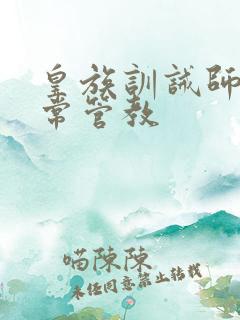 皇族訓誡師
常管教
喵陳陳
未經同意禁止轉載